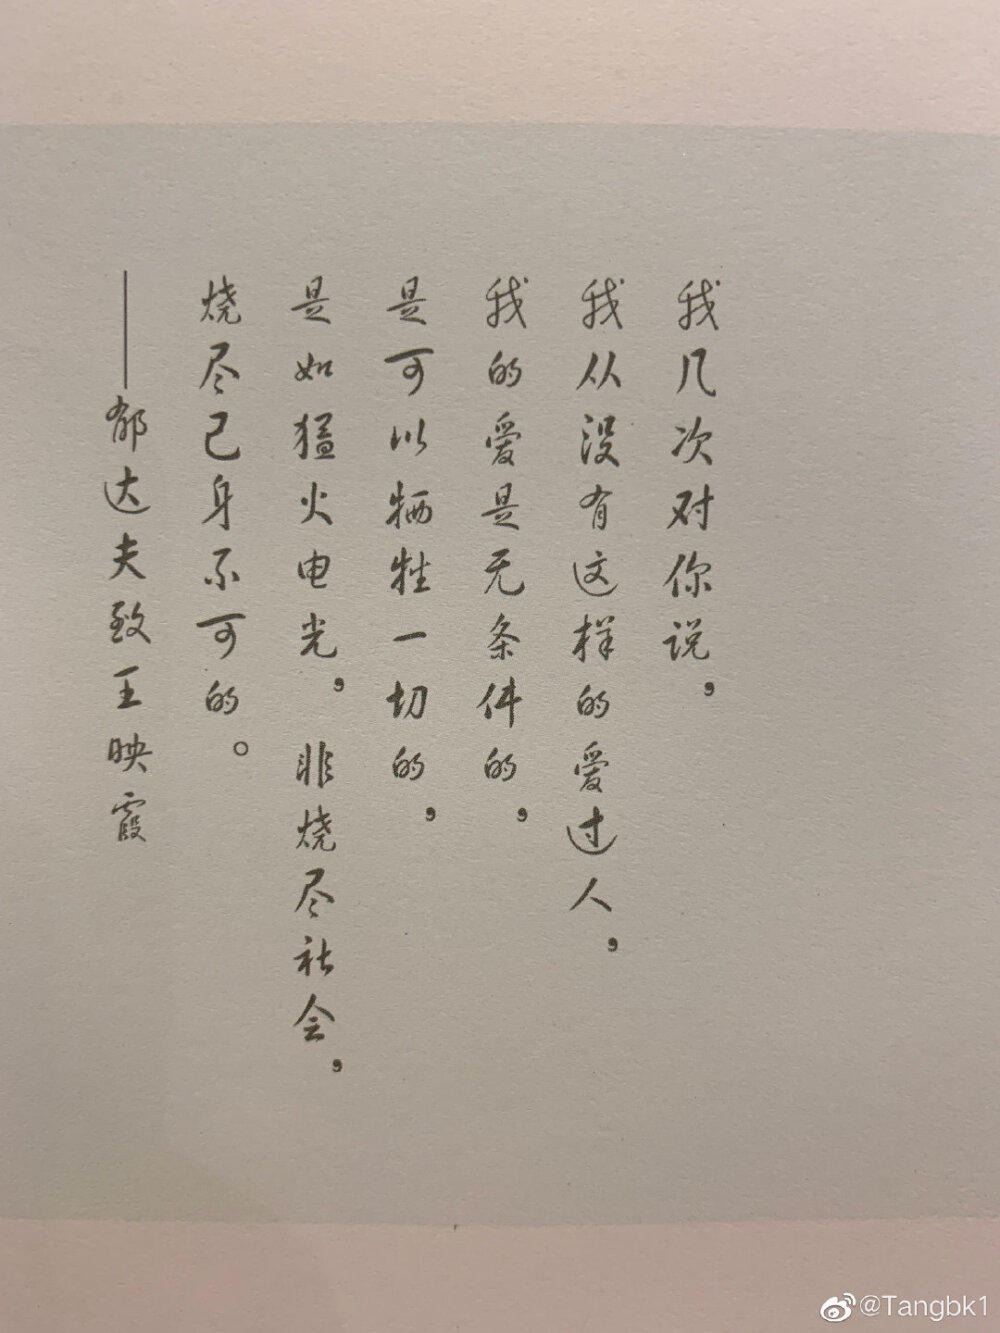 我几次对你说，
我从没有这样的爱过人，
我的爱是无条件的，
是可以牺牲一切的，
是如猛火电光，非烧尽社会，
烧尽己身不可的。
——郁达夫致王映霞
@Tangbk1